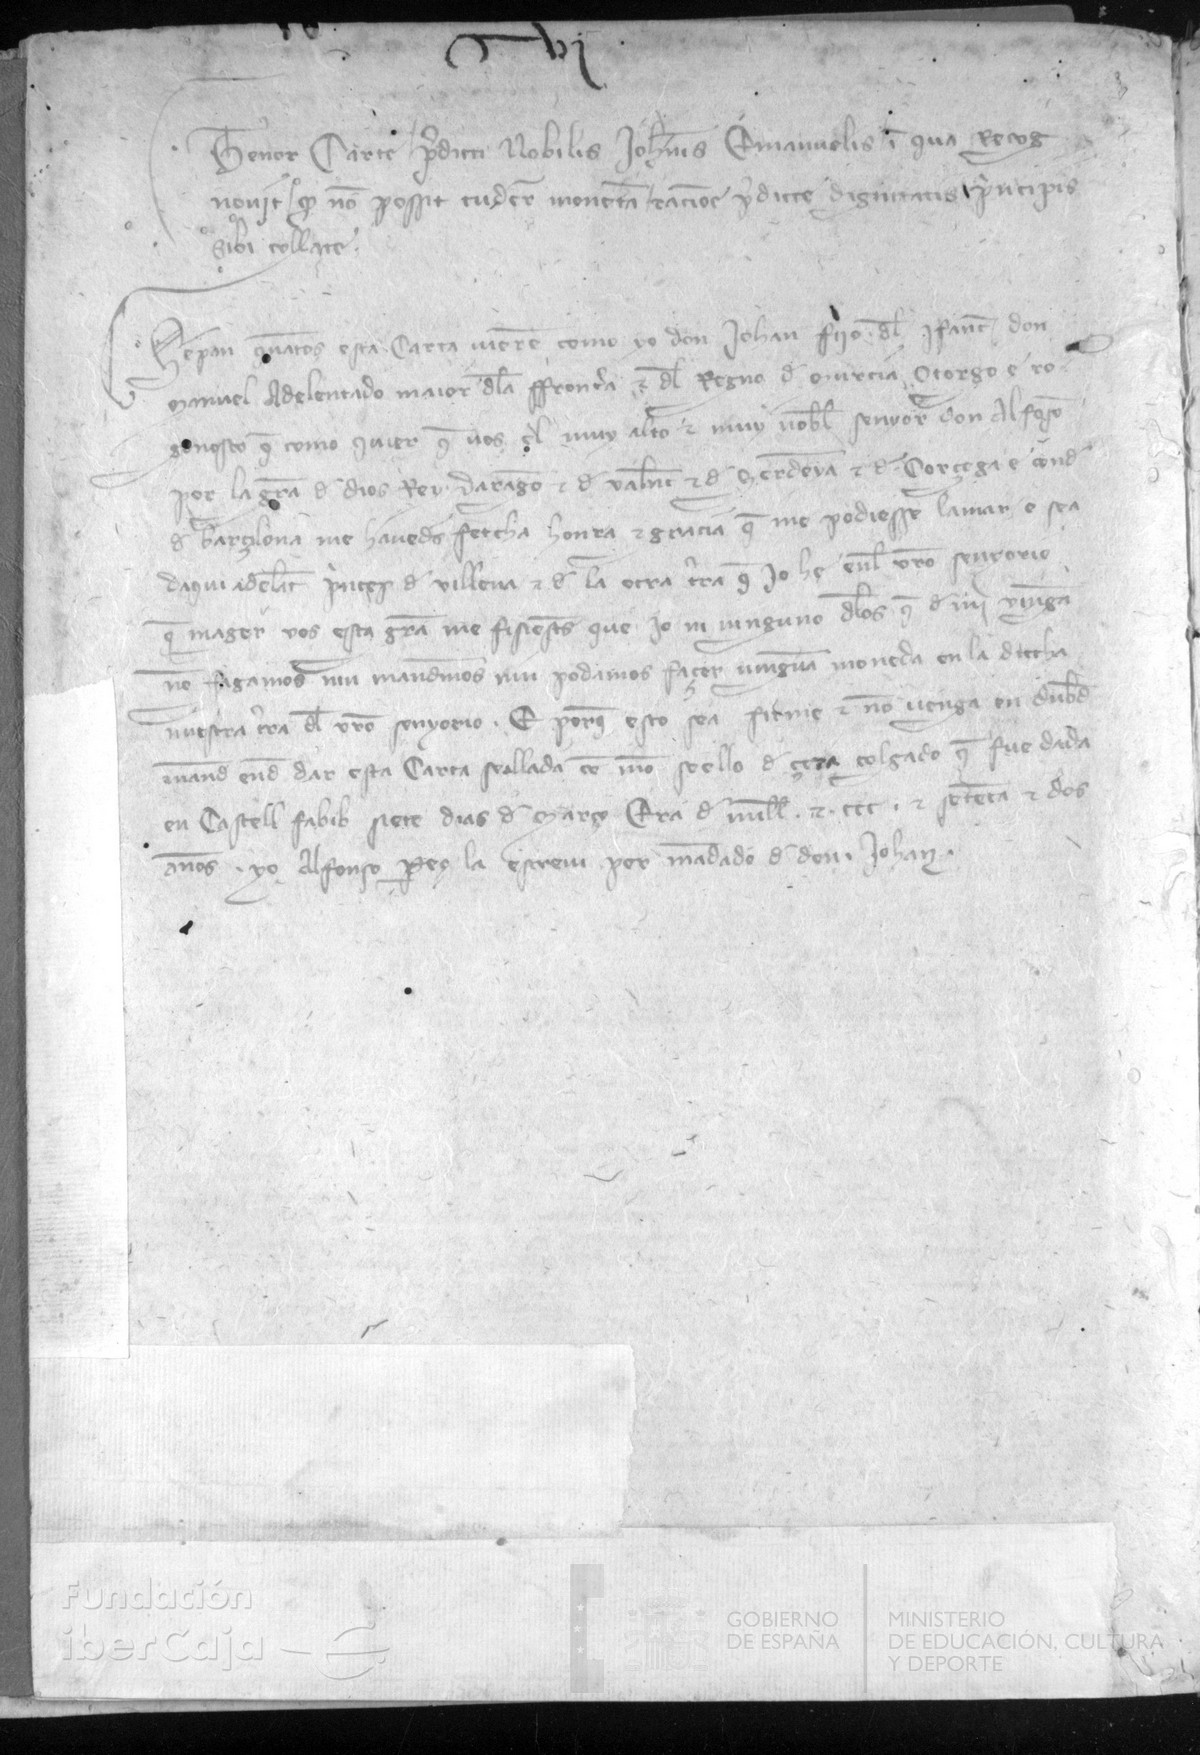 Tenor Carte p̃dicti Nobilis Johĩs Emanuelis ĩ qua Recog
novit q̃ nõ possit cudere monetã racioe p̃dicte dignitatis p̃ncipis
sibi collate.
Sepan quãtos esta Carta vierẽ como yo don Johan fijo dl̃ Ifant don
Manuel Adelentado maior dl̃a ffront̃a ⁊ dl̃ Regno d̃ Murcia Otorgo e co
gnosco q̃ como quier q̃ vos el muy alto ⁊ muy nobl̃ senyor don Alfoso
por la gr̃a d̃ dios Rey Darago ⁊ d̃ Valenc ⁊ d̃ Serdenya ⁊ d̃ Corcega e cond
d̃ Barcelona me haveds fetcha honra ⁊ gracia q̃ me podiesse lamar e sea
daqui adelãt p̃ncep d̃ Villena ⁊ d̃ la otra t̃ra q̃ Jo he enl̃ vr̃o senyorio
q̃ mager vos esta gr̃a me fisiests que Jo ni ninguno dl̃os q̃ d̃ mi vinga
nõ fagamos nin mandemos nin podamos facer ninguã moneda en la ditcha
nuestra t̃ra dl̃ vr̃o senyorio. E porq̃ esto sea firme ⁊ nõ venga en dubd
mand end dar esta Carta seellada cõ mio seello d̃ cera colgado q̃ fue dada
en Castell fabib siete dias d̃ Março Era d̃ mill. ⁊. ccc. ⁊ seteta ⁊ dos
anos. yo Alfonso Pereç la escreui por mãdado d̃ don Johan.
Fundación
iberCaja
GOBIERNO
DE ESPAÑA
MINISTERIO
DE EDUCACIÓN, CULTURA
Y DEPORTE